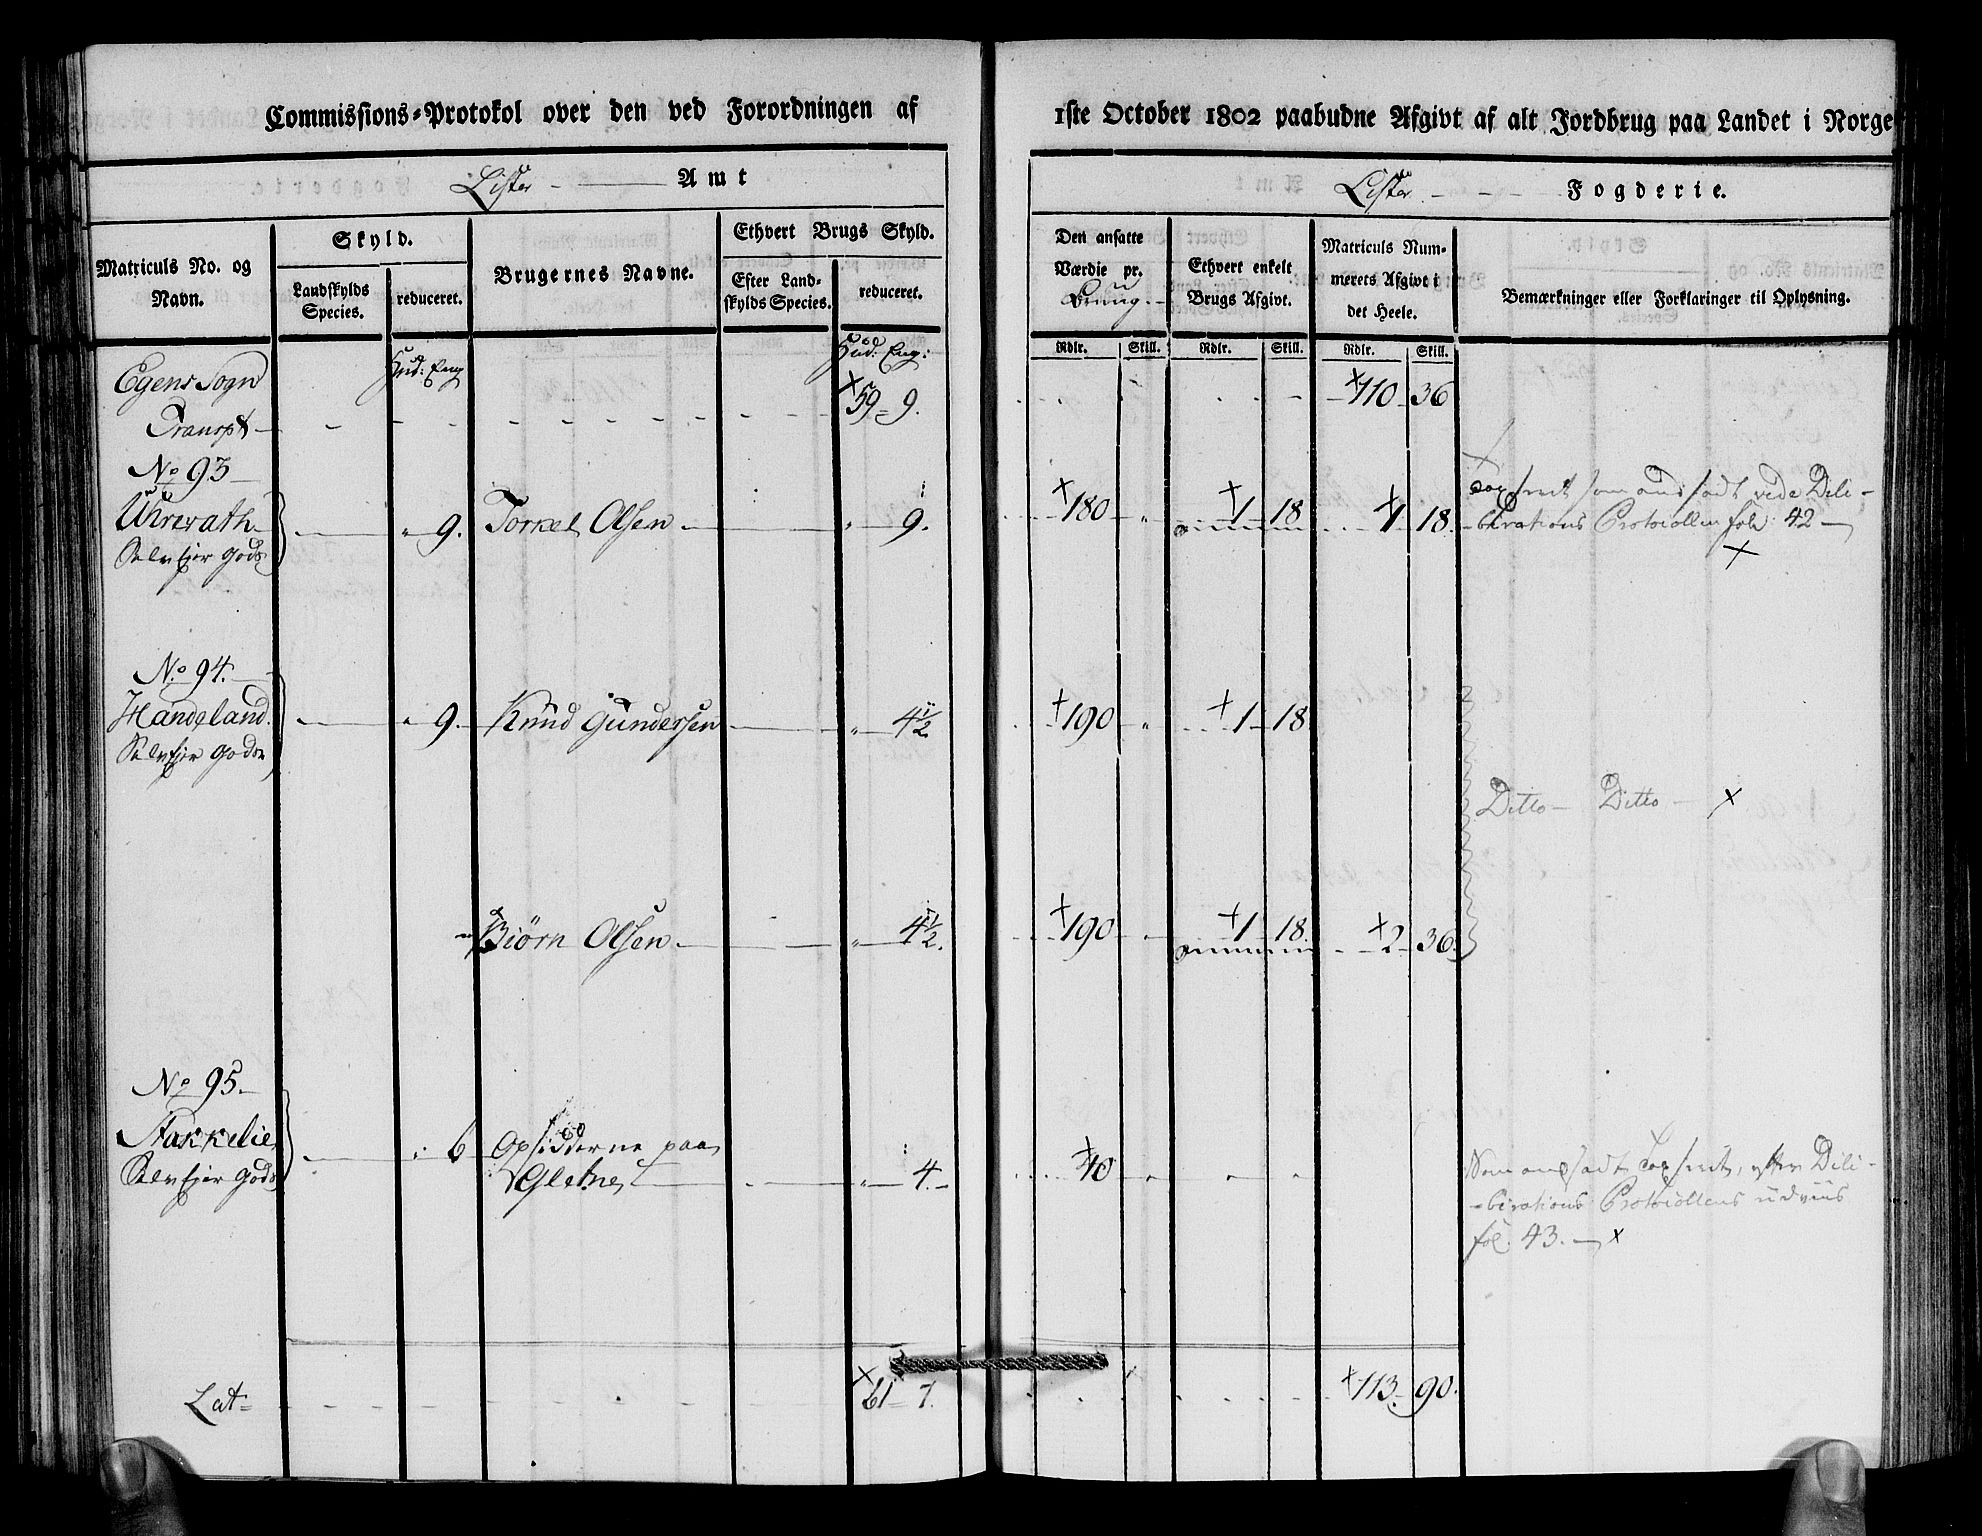 Commissions-Protokol over den ved Forordningen af
1ste October 1802 paabudne Afgivt af alt Jordbrug paa Landet i Norge
Lister Amt
Lister Fogderie.
Matriculs No. og
Navn.
Skyld.
Landskylds
Species.
reduceret.
Brugernes Navne.
Ethvert Brugs Skyld.
Efter Land-
skylds Species.
reduceret.
Den ansatte
Værdie pr.
Ethvert enkelt
Brugs Afgivt.
Matriculs Num-
merets Afgivt i
det Heele.
Bemærkninger eller Forklaringer til Oplysning.
Rdlr. Skill. Rdlr. Skill. Rdlr. Skill.
Hud: Eng Hud: Eng:
Egens Sogn
Transpt 59 9. 110 36
No 93
9. Torkel Olsen 9. 180 " 1 18 1 18.
Selvejer Gods
ansadt vede Deli-
berations Protocollen fol: 42
No 94.
Handeland. 9. Knud Gundersen 4½ 190 " 1 18
Selvejer Gods
Ditto Ditto
Biörn Olsen 4½. 190 1 18. 2 36.
No 95.
Stakkelie 6 Opsidderne paa
Selvejer Gods Gletne 4. 40
Som ansadt, efter Deli-
berations Protocollens udviis
fol. 43.
Lat 61 7. 113. 90.